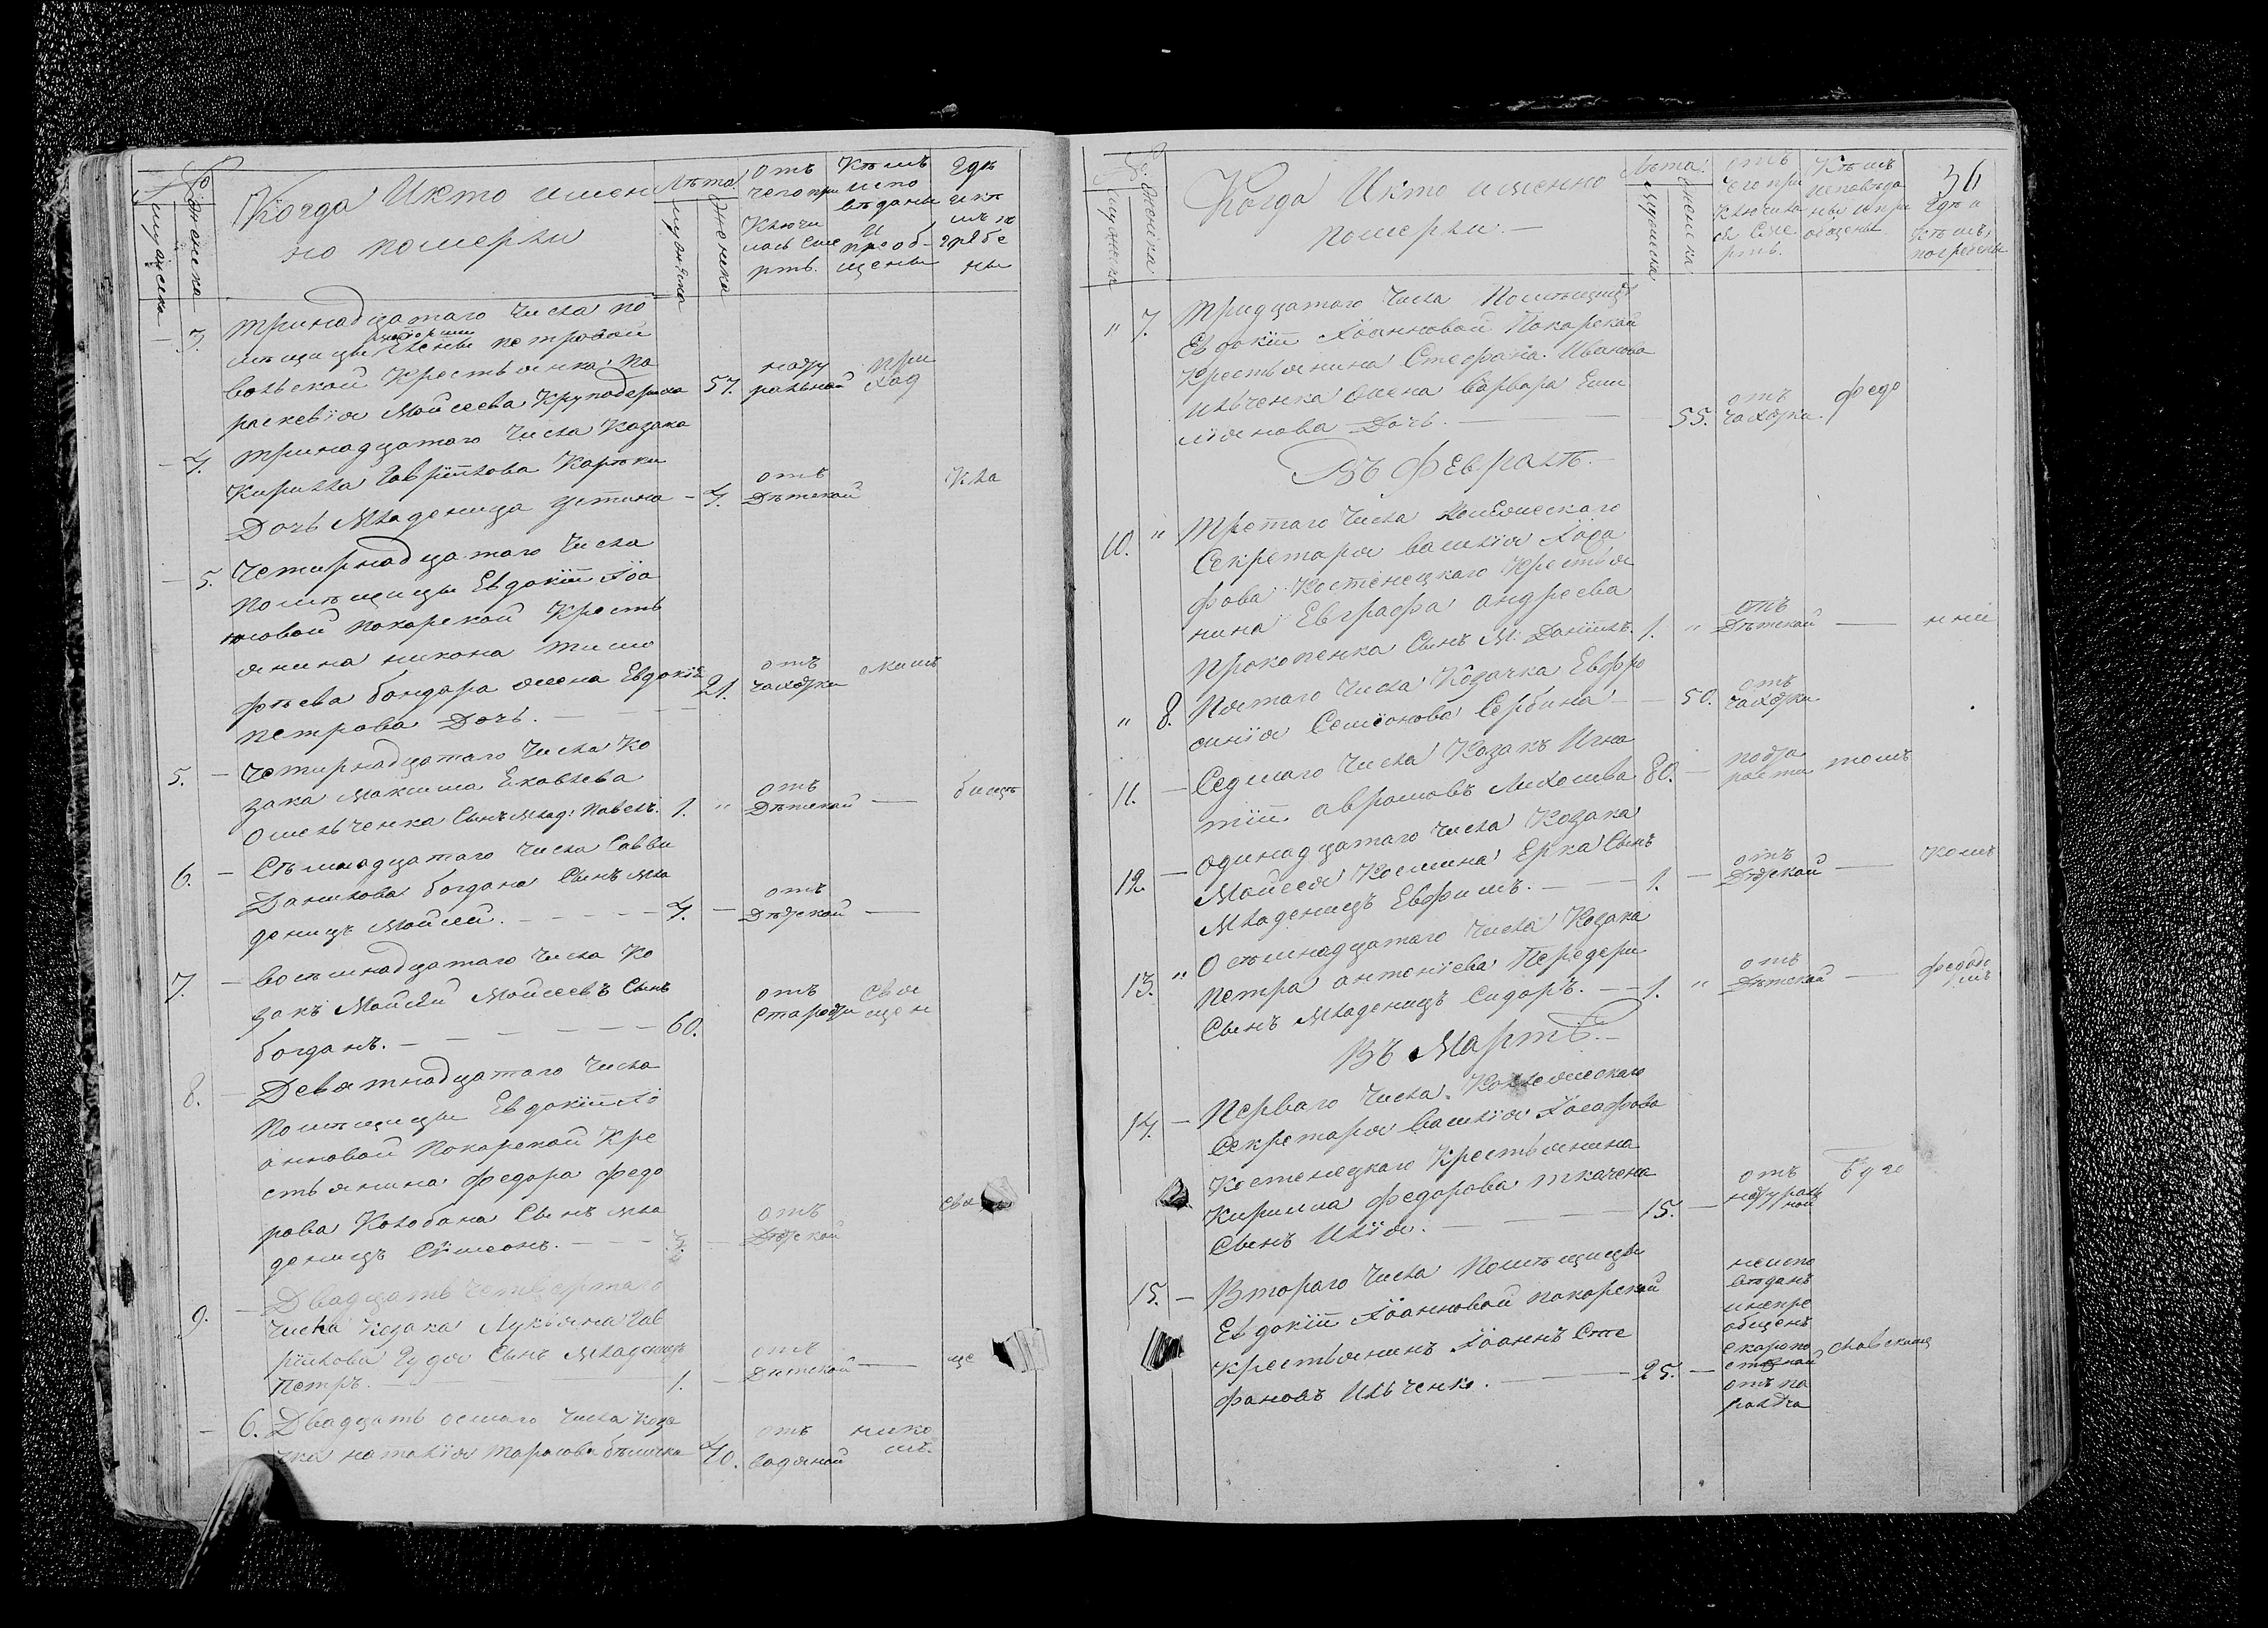 №
мужеска
женска
Когда Икто имен
но померли
Лѣта
мужеска
женска
отъ
чего при
ключи
лась сме
рть.
Кѣмъ
испо
вѣданы
и
преоб-
щены
гдѣ
икѣ
мъ по
гребе
ны
— 3. Тринадцатаго Числа по
мѣщицы Елены петровой
вольской Крестьянка па
раскевія Мойсеева Круподериха 57. натуральной При ход
— 4. Тринадцатаго Числа Козака
Кирилла Гавріилова Карпѣки
Дочь Младеница Устина — 4. отъ Дѣтской Кла
— 5. Четирнадцатаго Числа
помѣщицы Евдокіи Іоа
нновой покорской Кресть
янина никона тимо
фѣева бондара жена Евдокія 21. отъ чахотки скимъ
петрова Дочь. — — —
5. — Четирнадцатаго Числа Ко
зака Максима Іаковлева
Омельченка Сынъ млад: Павелъ. 1. " отъ Дѣтской — бищѣ
6. — Сѣмнадцатаго Числа Саввы
Данилова богдана Сынъ мла
деницъ Мойсей. — — — 4. — отъ Дѣтской —
7. — Восѣмнадцатаго Числа Ко
закъ Мойсей Мойсеевъ Сынъ
богданъ. — — — — 60. отъ старости Свя щен
8. — Девятнадцатаго Числа
Помѣщицы Евдокіи Іо
анновой Покорской Кре
стьянина федора федо
рова Колобана Сынъ мла
деницъ Сімеонъ. — — — отъ Дѣтской Свя
9. — Двадцать четвертаго
числа Козака Лукіяна Гав
ріилова Гудоя Сынъ Младеницъ
Петръ. — 1. — отъ Дитской — ще
— 6. Двадцать осмаго Числа Коза
чка наталія Тарасова 40. отъ водяной нико мъ.
36
№
мужеска
женска
Когда Икто именно
померли. —
Лѣта:
мужеска
женска
отъ
чего при
ключила
ся Сме
рть.
Кѣмъ
исповѣда
ны и при
общены
гдѣ и
Кѣмъ
погребены
" 7. Тридцатаго Числа Помѣщицы
Евдокіи Іоанновой Покорской
Крестьянина Стефана Иванова
ильченка жена варвара Еми
ліянова Дочь. — 55. отъ чахотки. федо
Въ Февралѣ. —
10. " Третаго Числа Колежскаго
Секретаря Василія Іоса
фова Костенецкаго Крестья
нина Евграфа андреева
Прокопенка Сынъ М: Даніилъ. 1. " отъ Дѣтской — нній
" 8. Пятаго Числа Козачка Евфро
синія Семіонова Сербина — — 50. отъ чахотки
11. — Седмаго Числа Козакъ Игна
тій аврамовъ Лихошва 80. — по ста рости томъ
12. — одинадцатаго числа Козака
Мойсея Космина Ерка Сынъ
Младеницъ Евфимъ. — — 1. — отъ Дѣтской — комъ
13. " Осѣмнадцатаго Числа Козака
Петра антоніева Передери
Сынъ Младеницъ Сидоръ. — — 1. " отъ Дѣтской — федото мъ
Въ Мартѣ. —
14. — Перваго Числа Коллежскаго
Секретаря Василія Іосафова
Костенецкаго Крестьянина
Кирилла федорова ткачена
Сынъ Илія. — — — 15. — отъ натураль ной Буго
15. — Втораго Числа Помѣщицы
Евдокіи Іоанновой покорской
Крестьянинъ Іоаннъ Сте
фановъ Ильченко. — — 25. —
неиспо
вѣданъ
инепре
общенъ
скоропо
стжной славскимъ
отъ па